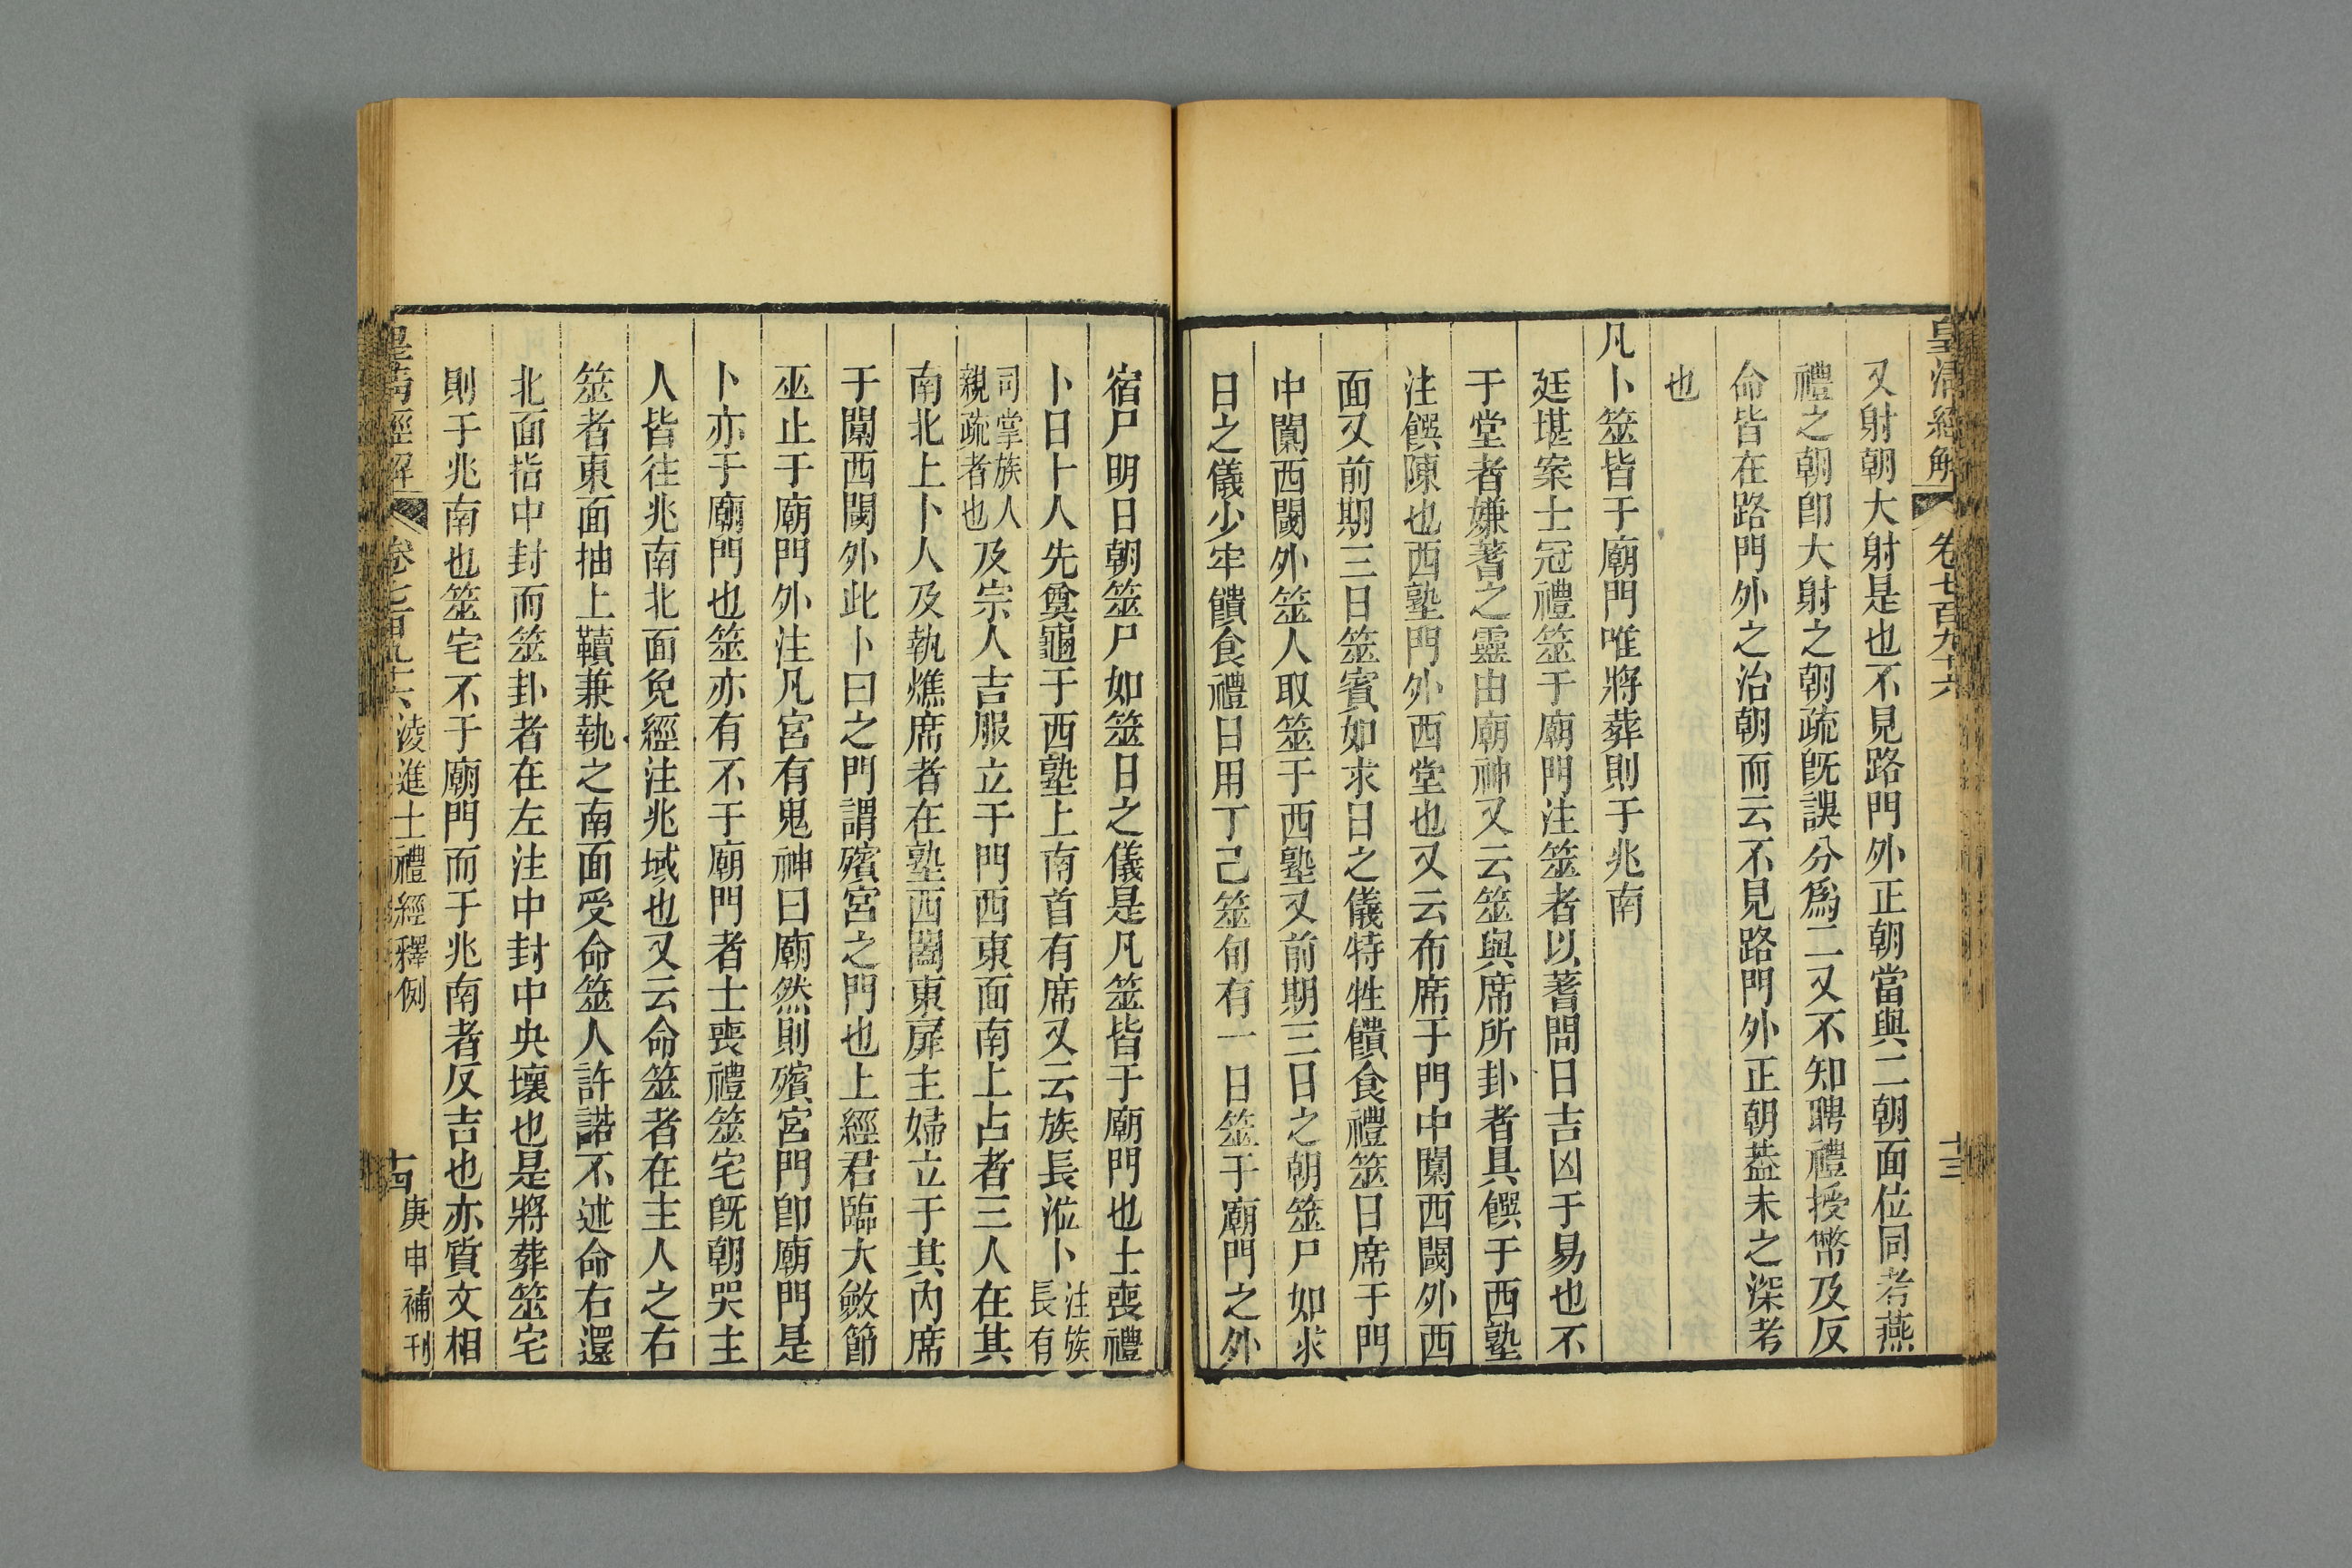 皇清經解
卷七百九十六
十三
又射朝大射是也不見路門外正朝當與二朝面位同考燕
禮之朝卽大射之朝疏旣誤分爲二又不知聘禮授幣及反
命皆在路門外之治朝而云不見路門外正朝葢未之深考
也
凡卜筮皆于廟門唯將葬則于兆南
廷堪案士冠禮筮于廟門注筮者以蓍問日吉凶于易也不
于堂者嫌蓍之靈由廟神又云筮與席所卦者具饌于西塾
注饌陳也西塾門外西堂也又云布席于門中闑西閾外西
面又前期三日筮賓如求日之儀特牲饋食禮筮日席于門
中闑西閾外筮人取筮于西塾又前期三日之朝筮尸如求
日之儀少牢饋食禮日用丁己筮旬有一日筮于廟門之外
宿尸明日朝筮尸如筮日之儀是凡筮皆于廟門也士喪禮
卜日卜人先奠龜于西塾上南首有席又云族長涖卜注族長有
司掌族人親疏者也及宗人吉服立于門西東面南上占者三人在其
南北上卜人及執燋席者在塾西闔東扉主婦立于其內席
于闑西閾外此卜日之門謂殯宮之門也上經君臨大斂節
巫止于廟門外注凡宮有鬼神曰廟然則殯宮門卽廟門是
卜亦于廟門也筮亦有不于廟門者士喪禮筮宅旣朝哭主
人皆往兆南北面免絰注兆域也又云命筮者在主人之右
筮者東面抽上韇兼執之南面受命筮人許諾不述命右還
北面指中封而筮卦者在左注中封中央壤也是將葬筮宅
則于兆南也筮宅不于廟門而于兆南者反吉也亦質文相
皇清經解
卷七百九十六
淩進士禮經釋例
十四
庚申補刊